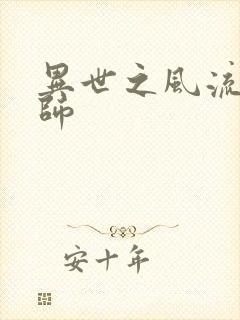 異世之風流
師
安十年